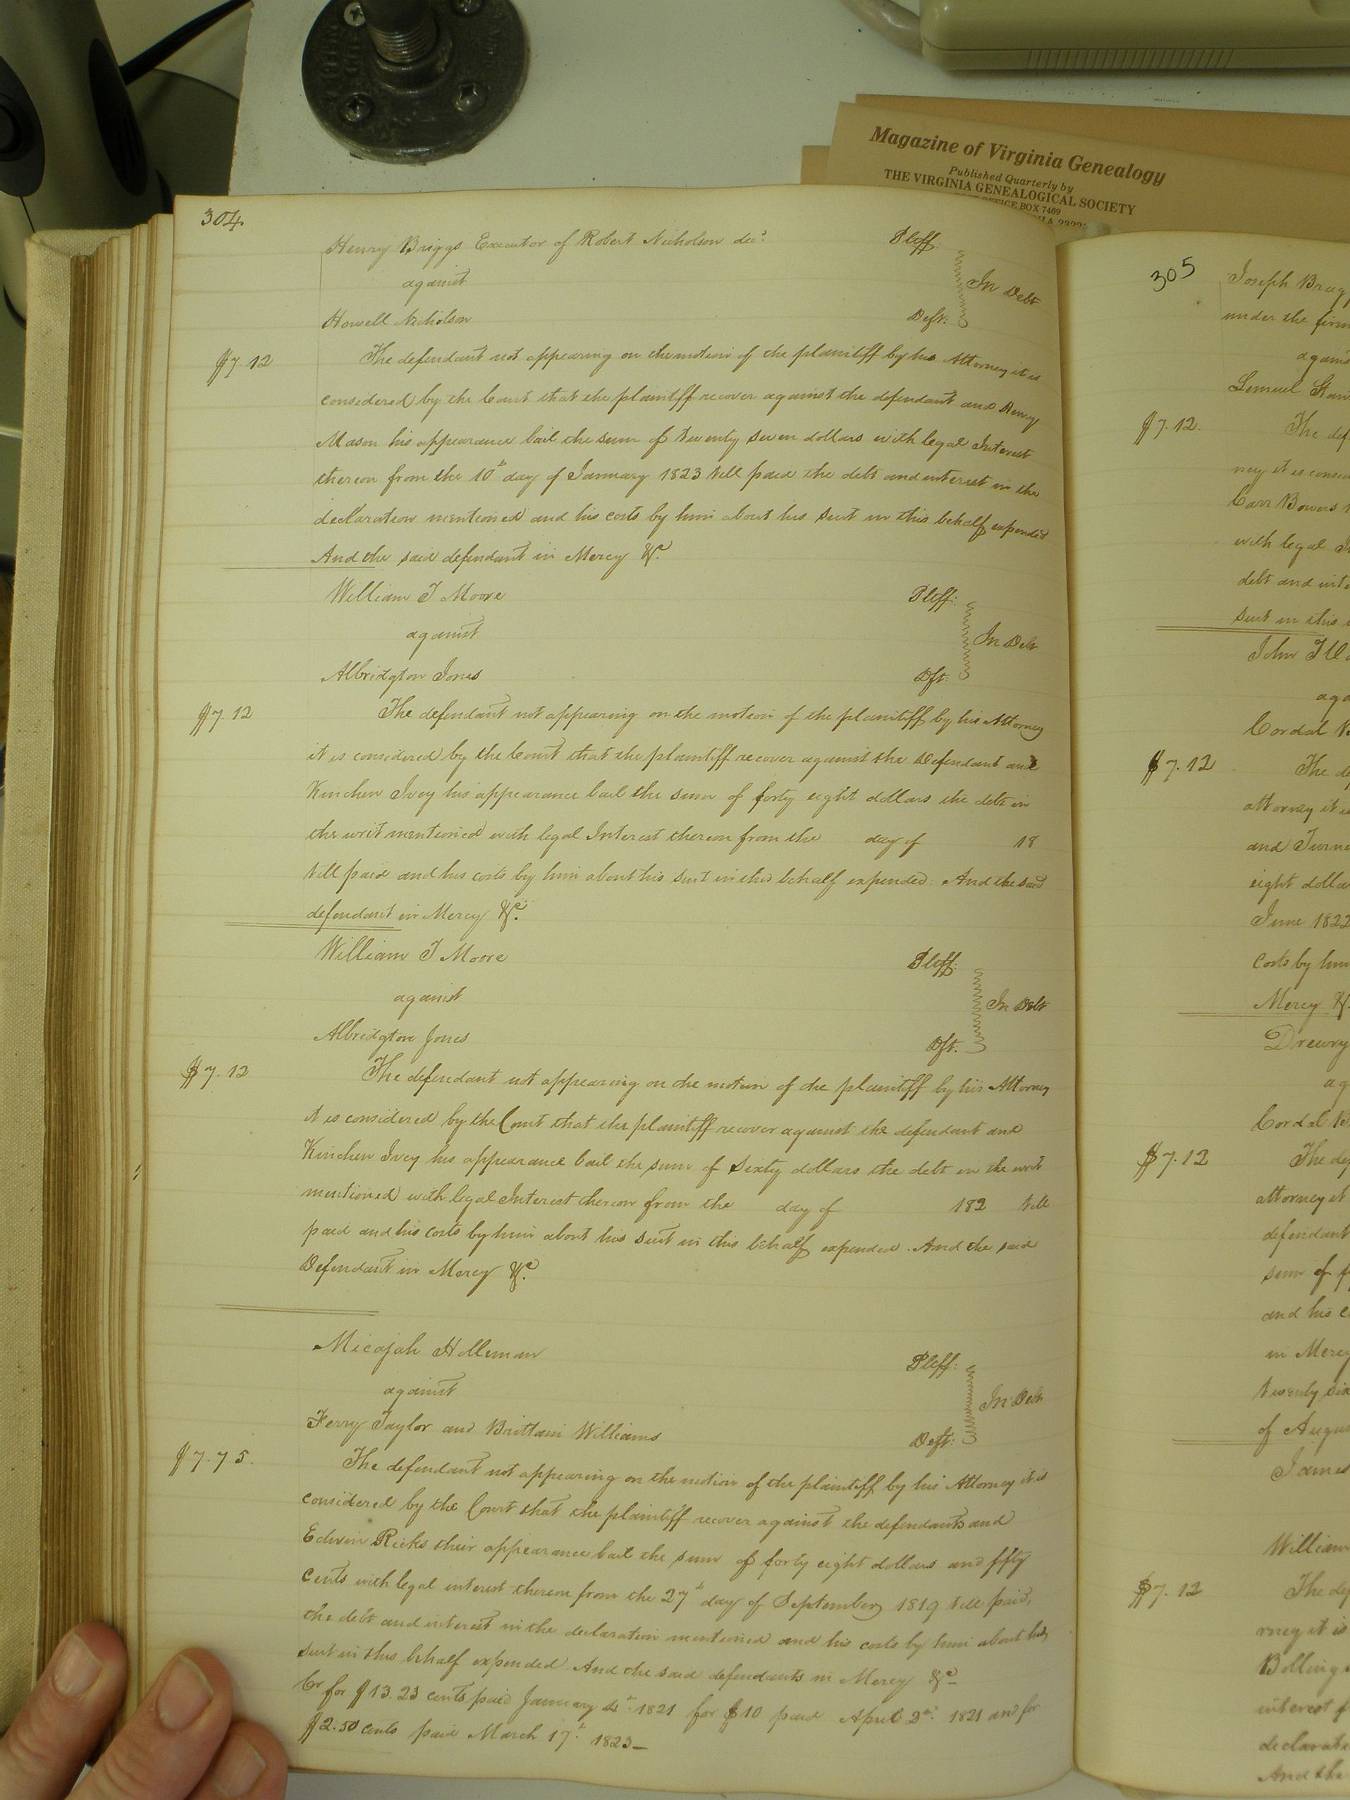 Magazine of Virginia Genealogy
Published Quarterly by
THE VIRGINIA GENEALOGICAL SOCIETY
OFFICE BOX 7469
304
Henry Briggs Executor of Robert Nicholson decd. Pltff.
against In Debt
Howell Nicholson Deft.
$7.12 The defendant not appearing on the motion of the plaintiff by his Attorney it is
considered by the Court that the plaintiff recover against the defendant and Henry
Mason his appearance bail the sum of twenty seven dollars with legal Interest
thereon from the 10th day of January 1823 till paid the debt and interest in the
declaration mentioned and his costs by him about his Suit in this behalf expended
And the said defendant in Mercy &c.
William T Moore Pltff.
against In Debt
Albridgton Jones Dft.
$7.12 The defendant not appearing on the motion of the plaintiff by his Attorney
it is considered by the Court that the plaintiff recover against the Defendant and
Kinchen Ivey his appearance bail the sum of forty eight dollars the debt in
the writ mentioned with legal Interest thereon from the day of 18
till paid and his costs by him about his Suit in this behalf expended. And the said
defendant in Mercy &c.
William T Moore Pltff.
against In Debt
Albridgton Jones Dft.
$7.12 The defendant not appearing on the motion of the plaintiff by his Attorney
it is considered by the Court that the plaintiff recover against the defendant and
Kinchen Ivey his appearance bail the sum of Sixty dollars the debt in the writ
mentioned with legal Interest thereon from the day of 182 till
paid and his costs by him about his suit in this behalf expended. And the said
Defendant in Mercy &c.
Micajah Holleman Pltff.
against In Debt
Ferry Taylor and Brittain Williams Deft.
$7.75. The defendant not appearing on the motion of the plaintiff by his Attorney it is
considered by the Court that the plaintiff recover against the defendants and
Edwin Ricks their appearance bail the sum of forty eight dollars and fifty
cents with legal interest thereon from the 27th day of September 1819 till paid,
the debt and interest in the declaration mentioned and his costs by him about his
Suit in this behalf expended And the said defendants in Mercy &c
Cr for $13.23 cents paid January 4th 1821 for $10 paid April 2nd 1821 and for
$2.50 cents paid March 17th 1823
305
Joseph
under the firm
against
Lemuel
$7.12. The
it is
Carr Bowers
with legal
debt and
Suit in this
John
Cordal
$7.12 The
attorney it
and
eight
June 1822
costs by him
Mercy &
Drewry
$7.12 The
attorney it
defendant
sum of
and his
in Mercy
twenty six
of
James
William
$7.12 The
it is
Bolling
interest
And the